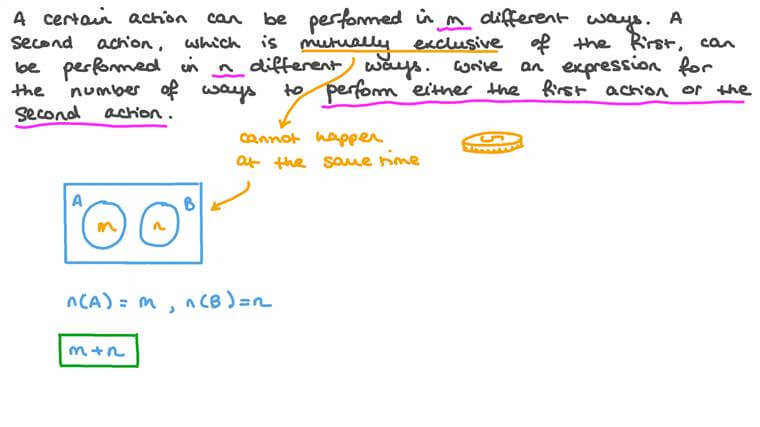 A certain action can be performed in m different ways. A
second action, which is mutually exclusive of the first, can
be performed in n different ways. Write an expression for
the number of ways to perform either the first action or the
second action.
cannot happen
at the same time
A B
m n
n(A) = m , n(B) = n
m + n